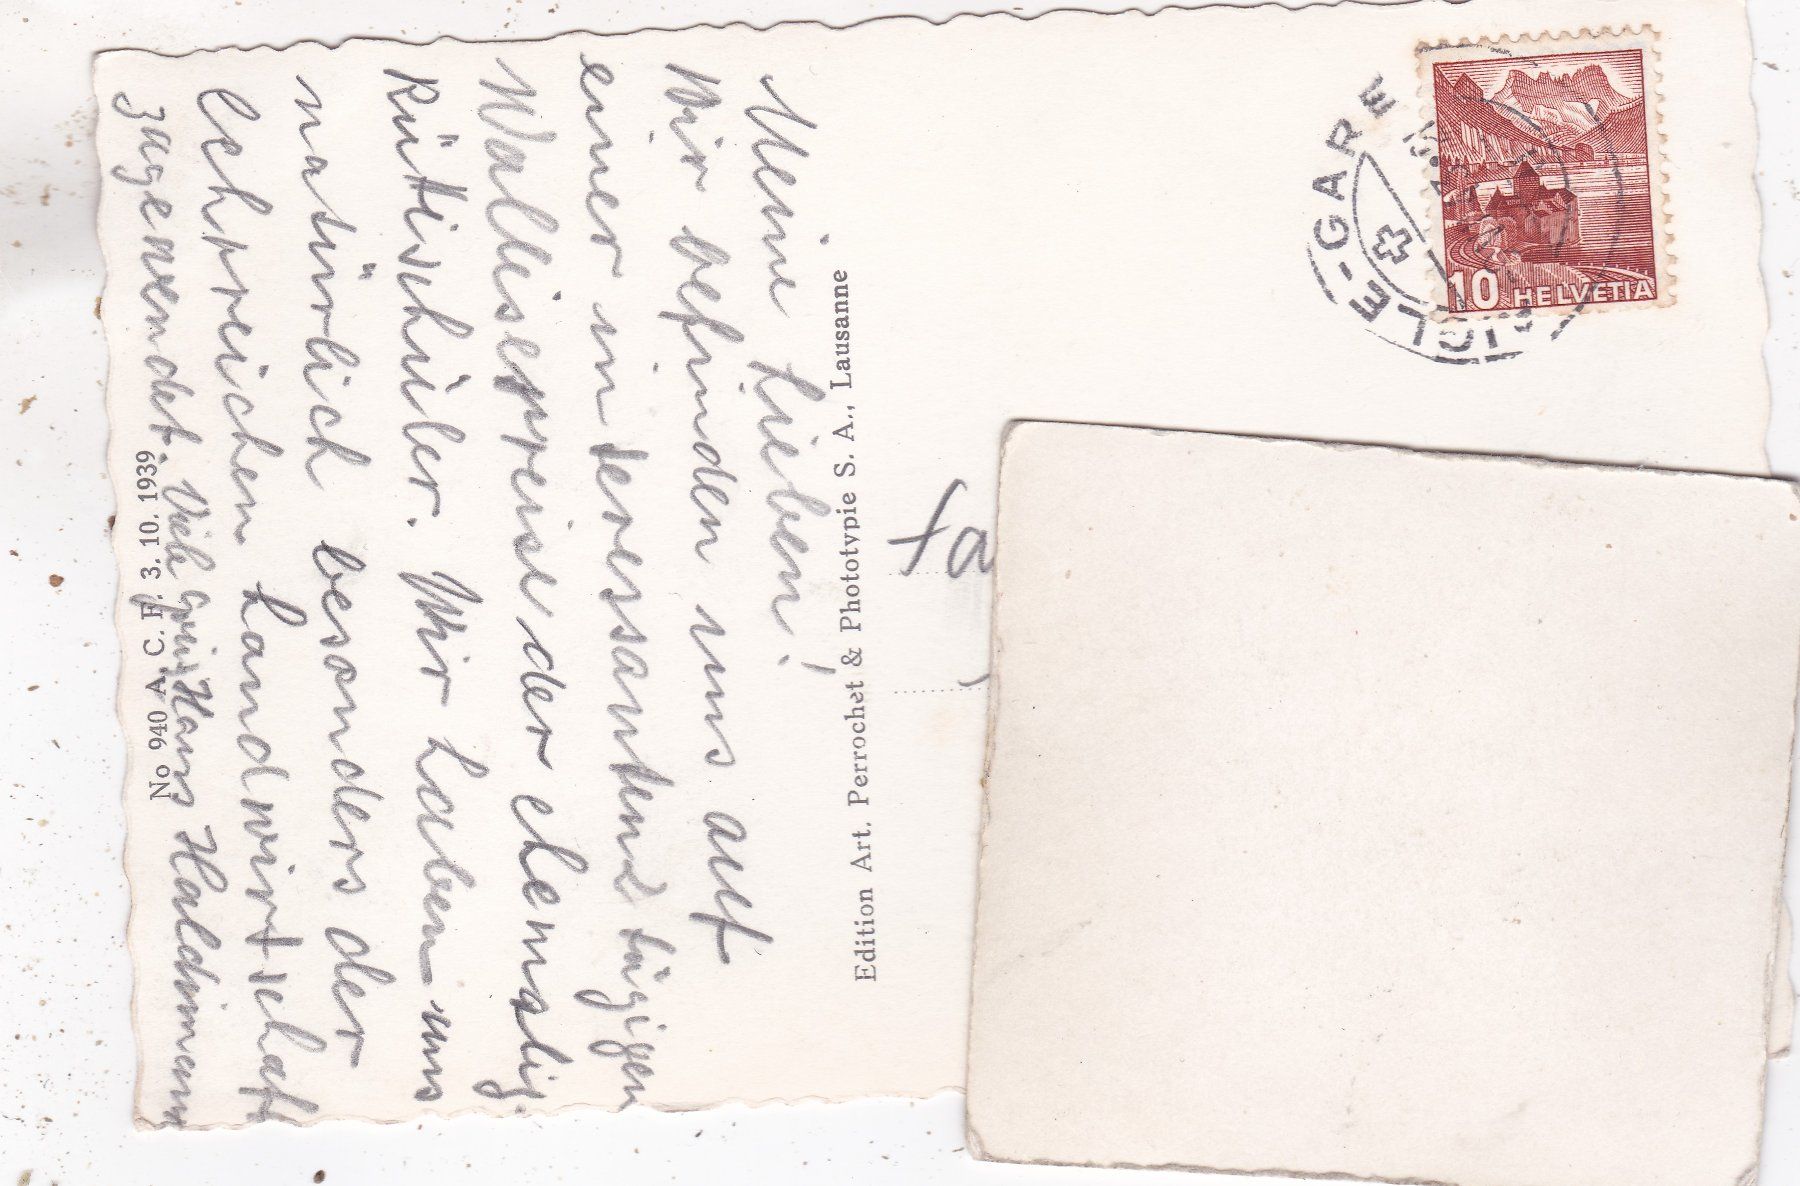 Meine Lieben!
Wir befinden uns auf
einer interessanten 2 tägigen
Walliserreise der ehemalig.
Rütischüler. Wir haben uns
natürlich besonders der
lehrreichen Landwirtschaft
zugewendet. Viele Grüsse Hans Haldimann
No 940 A. C. F. 3. 10. 1939
Edition Art. Perrochet & Phototypie S. A., Lausanne
Fa
10 HELVETIA
AIGLE-GARE